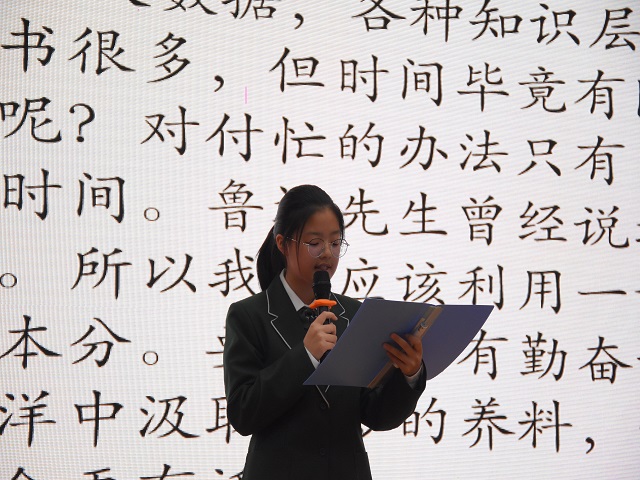 数据，各种知识层
书很多，但时间毕竟有
呢？对付忙的办法只有
时间。鲁 先生曾经说
。所以我 应该利用一
本分。 有勤奋
洋中汲取 的养料，